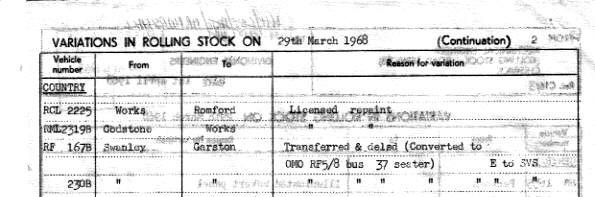 VARIATIONS IN ROLLING STOCK ON 29th March 1968 (Continuation) 2
Vehicle number From To Reason for variation
COUNTRY
RCL 2225 Works Romford Licensed repaint
RML2319B Godstone Works " "
RF 167B Swanley Garston Transferred & delsd (Converted to
OMO RF5/8 bus 37 seater) E to SVS
230B " " " " " " " " "